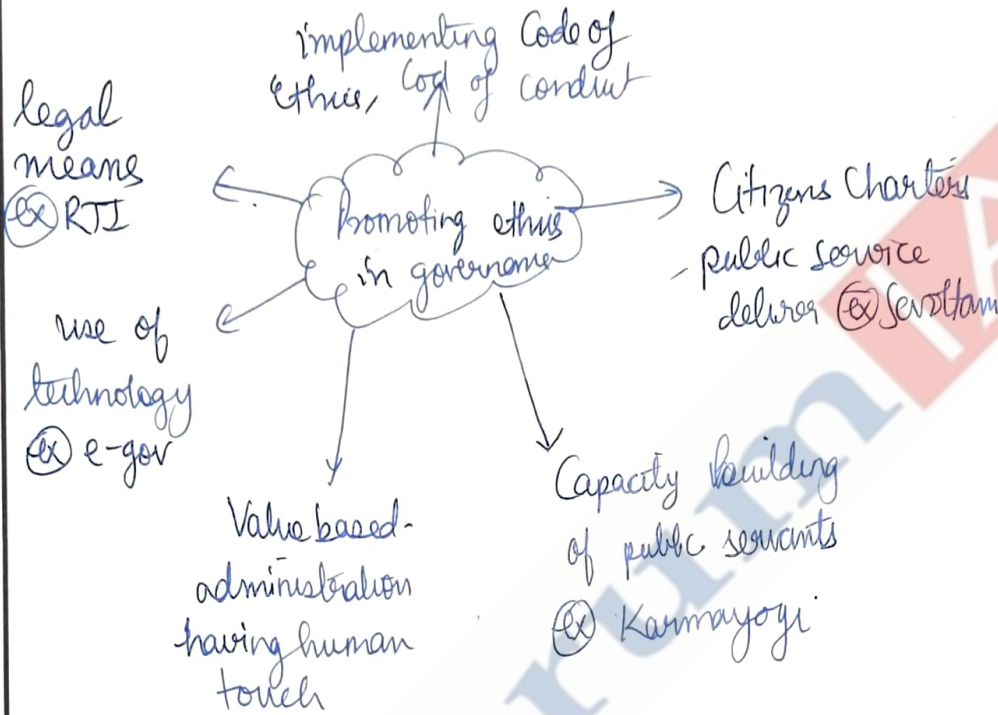 implementing Code of
ethics, Cod of conduct
legal
means
ex RTI
Promoting ethics
in governance
Citizens Charters
- public service
deliver ex Sevottam
use of
technology
ex e-gov
Value based-
administration
having human
touch
Capacity building
of public servants
ex Karmayogi
rum IA